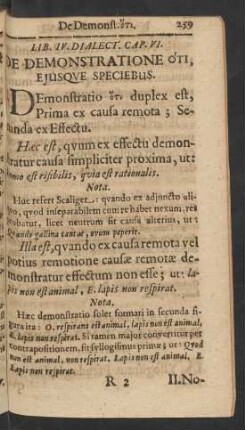 De Demonst. ὅτι. 259
LIB. IV. DIALECT. CAP. VI.
DE DEMONSTRATIONE ὅτι,
EJUSQVE SPECIEBUS.
DEmonstratio ὅτι duplex est,
Prima ex causa remota; Se-
cunda ex Effectu.
Hæc est, qvum ex effectu demon-
stratur causa simpliciter proxima, ut:
homo est risibilis, qvia est rationalis.
Nota.
Huc refert Scaliger: qvando ex adjuncto ali-
qvo, qvod inseparabilem cum re habet nexum, res
probatur, licet neutrum sit causa alterius, ut:
Qvando gallina cantat, ovum peperit.
Illa est, qvando ex causa remota vel
potius remotione causæ remotæ de-
monstratur effectum non esse; ut: la-
pis non est animal, E. lapis non respirat.
Nota.
Hæc demonstratio solet formari in secunda fi-
gura ita: O. respirans est animal, lapis non est animal,
E. lapis non respirat. Si tamen major convertitur per
contrapositionem, fit syllogismus primæ; ut: Qvod
non est animal, non respirat. Lapis non est animal. E.
Lapis non respirat.
R 2 II. No-